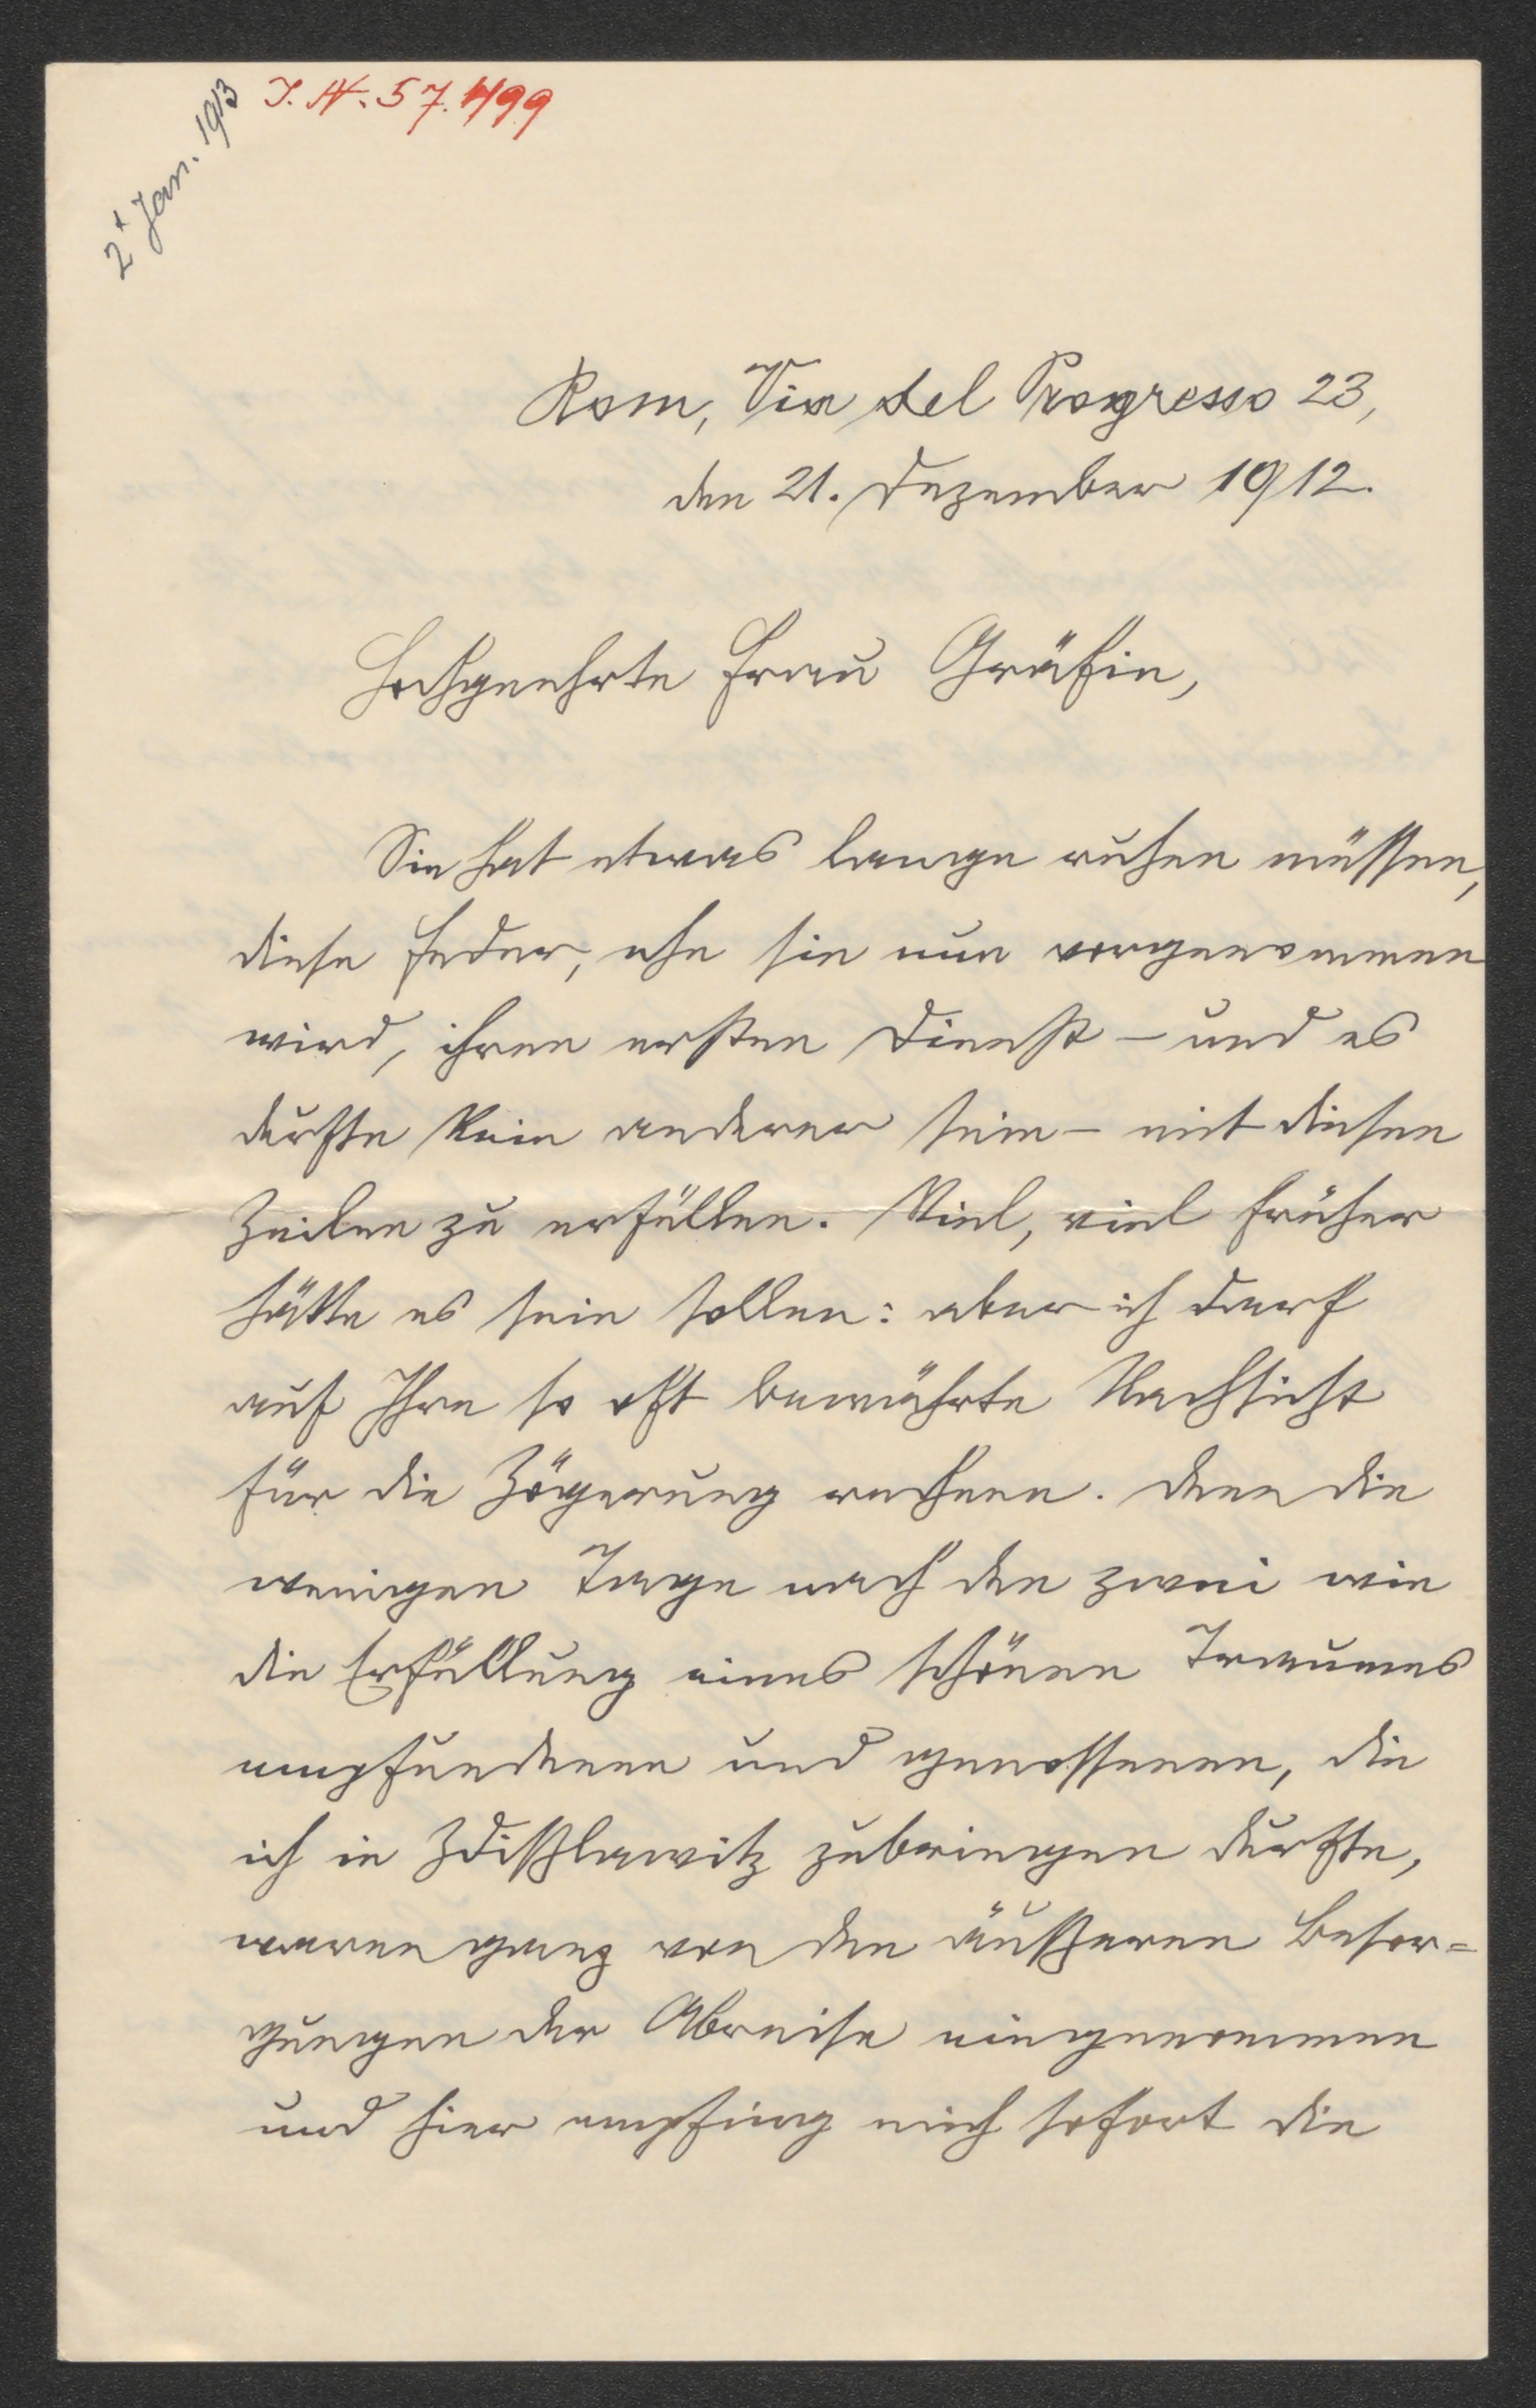 2t Jan. 1913
I. N. 57.499
Rom, Via del Progresso 23,
den 21. Dezember 1912.
Hochgeehrte Frau Gräfin,
Sie hat etwas lange ruhen müssen,
diese Feder, ehe sie nun vorgenommen
wird, ihren ersten Dienst – und es
durfte kein anderer sein – mit diesen
Zeilen zu erfüllen. Viel, viel früher
hätte es sein sollen: aber ich darf
auf Ihre so oft bewährte Nachsicht
für die Zögerung rechnen. Denn die
wenigen Tage nach den zwei wie
die Erfüllung eines schönen Traumes
empfundenen und genossenen, die
ich in Zdißlawitz zubringen durfte,
waren ganz von den äußeren Besor=
gungen der Abreise eingenommen
und hier empfing mich sofort die